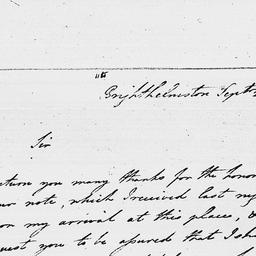 Brighthelmston Sept
Sir
return you many thanks for the honor
note, which I received last
on my arrival at this place, &
request you to be assured that I sh